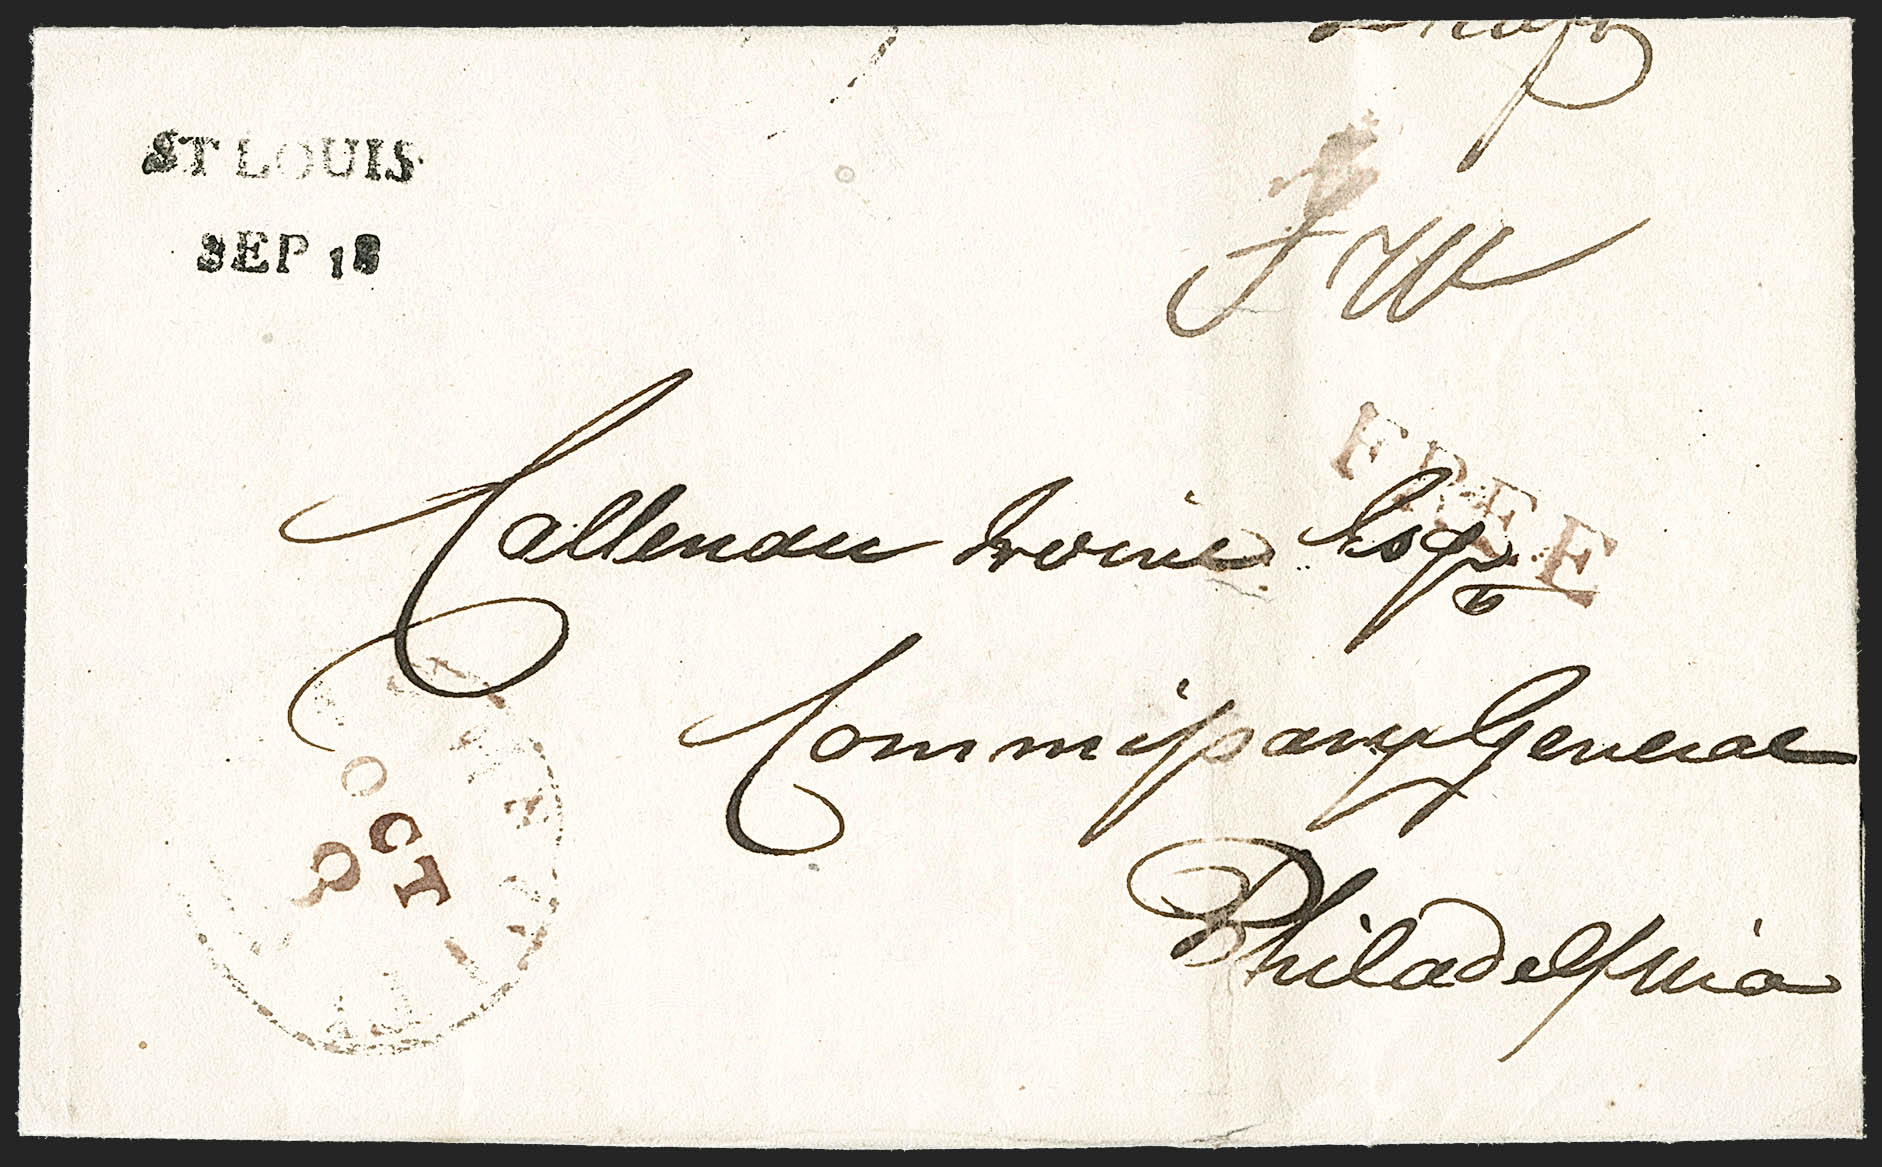 ST LOUIS
SEP 18
FW
FREE
Callender Irvine Esqr
Commissary General
Philadelphia
OCT